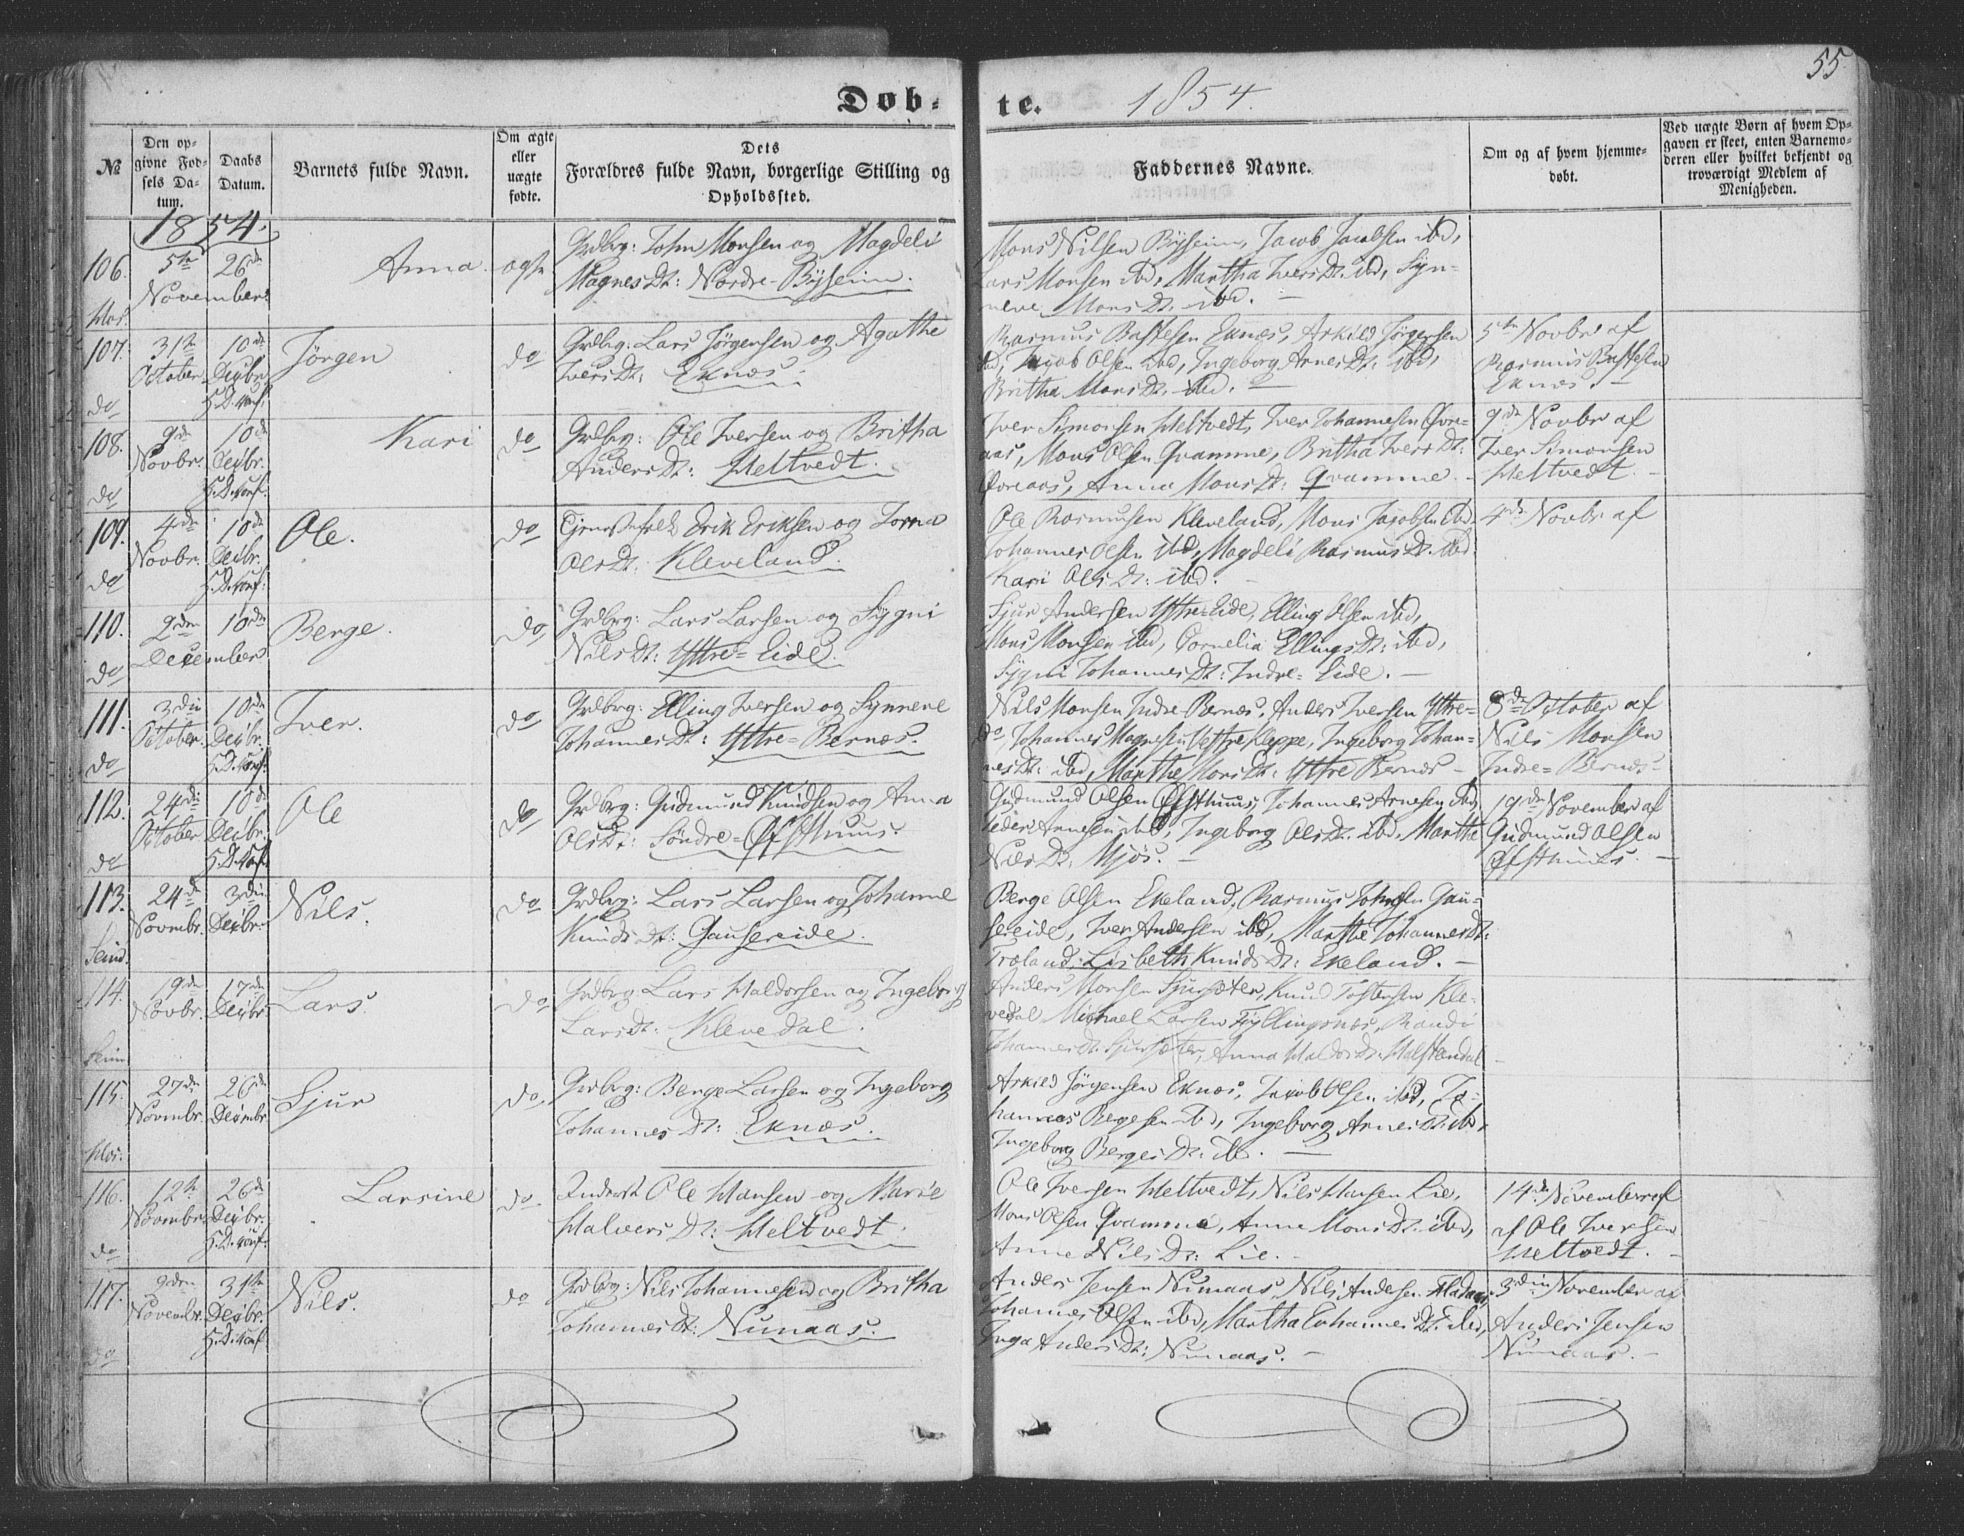 55
Døb-
te. 1854.
№
Den op-
givne Fød-
sels Da-
tum.
Daabs
Datum.
Barnets fulde Navn.
Om ægte
eller
uægte
fødte.
Dets
Forældres fulde Navn, borgerlige Stilling og
Opholdssted.
Faddernes Navne.
Om og af hvem hjemme-
døbt.
Ved uægte Børn af hvem Op-
gaven er skeet, enten Barnemo-
deren eller hvilket bekjendt og
troværdigt Medlem af
Menigheden.
1854.
106.
5te
26de
November
Anna.
ægte
Grdbrg: John Monsen og Magdeli
MagnesDt: Nordre-Bysheim.
Mons Nilsen Bysheim, Jacob Jacobsen ibd,
Lars Monsen ibd, Martha IversDt. ibd, Syn-
neve MonsDt. ibd.
107.
do
31te
October
10de
Decbr.
Jørgen
do
Grdbrg: Lars Jørgensen og Agathe
IversDt: Eknæs.
Rasmus Baltesen Eknæs, Arkild Jørgensen
ibd, Jacob Olsen ibd, Ingeborg ArnesDt. ibd,
Britha MonsDt. ibd.
5te Novbr af
Rasmus Baltesen
Eknæs.
108.
do
9de
Novbr.
10de
Decbr.
Kari
do
Grdbrg: Ole Iversen og Britha
AndersDt: Heltvedt.
Iver Simonsen Heltvedt, Iver Johannesen Øvre-
aas, Mons Olsen Qvamme, Britha IversDt:
Øvreaas, Anna MonsDt: Qvamme.
9de Novbr af
Iver Simonsen
Heltvedt.
109.
do
4de
Novbr.
10de
Decbr.
Ole.
do
Tjenestefolk Erik Eriksen og Torna
OlsDt: Kleveland.
Ole Rasmusen Kleveland, Mons Jacobsen ibd
Johannes Olsen ibd, Magdeli RasmusDt. ibd
Kari OlsDt: ibd.
4de Novbr af
110.
do
2den
10de
December
Berge.
do
Grdbrg: Lars Larsen og Sygni
NilsDt: Yttre-Eide.
Sjur Andersen Yttre-Eide, Elling Olsen ibd,
Mons Monsen ibd, Cornelia EllingsDt: ibd,
Sygni JohannesDt: Indre-Eide.
111.
do
3die
October.
10de
Decbr.
Iver.
do
Grdbrg: Elling Iversen og Synneve
JohannesDt: Yttre-Bernæs.
Nils Monsen Indre Bernæs, Anders Iversen Yttre-
do, Johannes Magnesen Vestre Kleppe, Ingeborg Johan-
nesDt: ibd, Marthe MonsDt: Yttre Bernæs
8de October af
Nils Monsen
Indre-Bernæs
112.
do
24de
October
10de
Decbr.
Ole
do
Grdbrg: Gudmund Knudsen og Anna
OlsDt: Søndre-Øfsthuus.
Gudmund Olsen Øfsthuus, Johannes Arnesen ibd,
Peder Arnesen ibd, Ingeborg OlsDt. ibd, Marthe
NilsDt: Mjøs.
19de November af
Gudmund Olsen
Øfsthuus.
113.
24de
Novmbr.
3die
Decbr.
Nils.
do
Grdbrg: Lars Larsen og Johanne
KnudsDt: Gausereide.
Berge Olsen Ekeland, Rasmus Johnsen Gau-
sereide, Iver Andersen ibd, Marthe JohannesDt:
Træland, Lisbeth KnudsDt: Ekeland.
114.
19de
Novbr.
17de
Decbr.
Lars.
do
Grdbrg Lars Haldorsen og Ingeborg
LarsDt: Klevedal.
Anders Monsen Sjursæter, Knud Tostersen Kle-
vedal Michael Larsen Fyllingsnæs, Randi
JohannesDt: Sjursæter, Anna
115.
27de
Novmbr.
26de
Decmbr
Sjur
do.
Grdbrg: Berge Larsen og Ingeborg
JohannesDt: Eknæs.
Arkild Jørgensen Eknæs, Jacob Olsen ibd, Jo-
hannes Bergesen ibd, Ingeborg ArnesDt. ibd,
Ingeborg BergesDt: ibd.
116.
do
12te
Novmbr.
26de
Decbr.
Larsine
do
Inderst Ole Hansen og Marie
HalversDt: Heltvedt.
Ole Iversen Heltvedt, Nils Hansen Lie,
Mons Olsen Qvamme, Anne MonsDt: ibd,
Anne NilsDt: Lie.
14de November af
af Ole Iversen
Heltvedt.
117.
do
2den
Novembr.
31te
Decbr.
Nils.
do
Grdbrg: Nils Johannesen og Britha
JohannesDt: Nunaas.
Anders Jensen Nunaas, Nils Andersen
Johannes Olsen ibd, Martha JohannesDt: ibd,
Inga AndersDt: Nunaas.
3die November af
Anders Jensen
Nunaas.